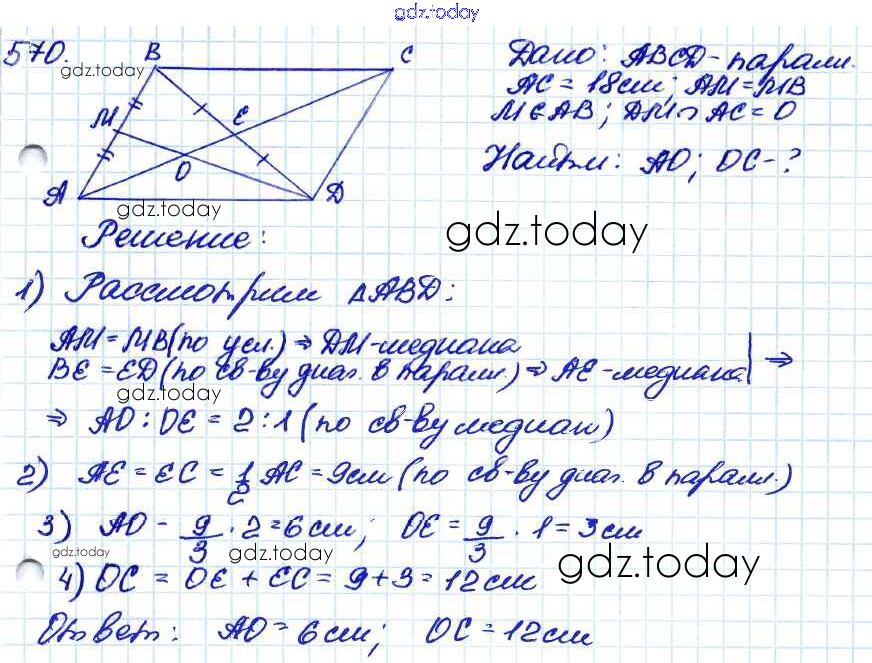 gdz.today
570.
B
C
gdz.today
M
E
O
A
D
gdz.today
Дано: ABCD - паралл.
AC = 18см; AM = MB
M∈AB; DM ∩ AC = O
Найти: AO; OC - ?
Решение:
gdz.today
1) Рассмотрим △ABD:
AM = MB (по усл.) ⇒ DM - медиана
BE = ED (по св-ву диаг. в паралл.) ⇒ AE - медиана | ⇒
gdz.today
⇒ AO : OE = 2 : 1 (по св-ву медиан)
2) AE = EC = 1/2 AC = 9см (по св-ву диаг. в паралл.)
3) AO - 9/3 · 2 = 6см; OE = 9/3 · 1 = 3см
gdz.today gdz.today gdz.today
4) OC = OE + EC = 9 + 3 = 12см
Ответ: AO = 6см; OC = 12см